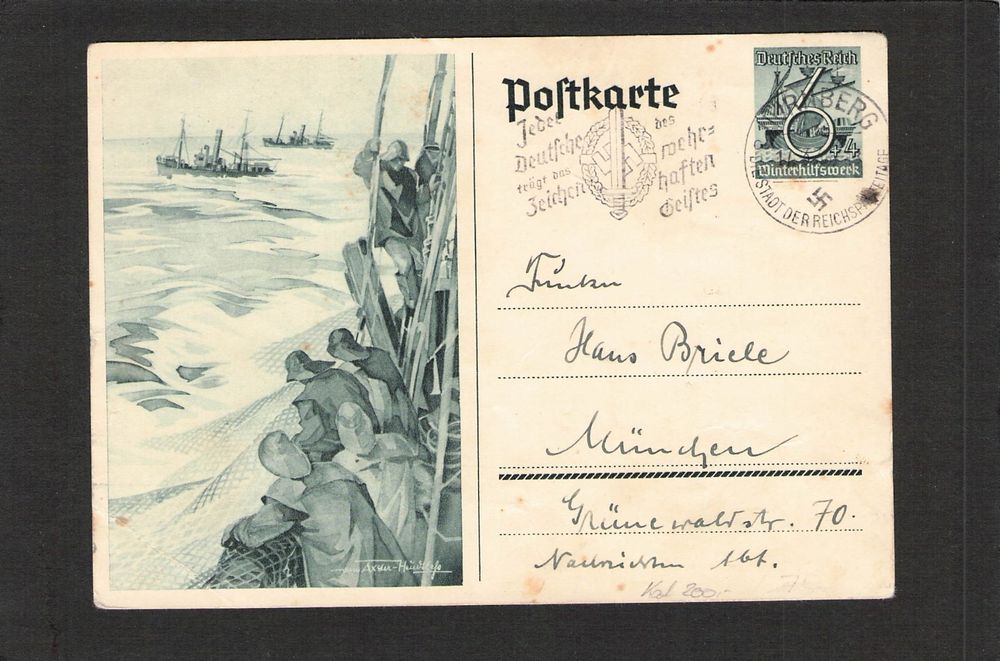 Postkarte
Deutsches Reich
6+4
Winterhilfswerk
Jeder
Deutsche
trägt das
Zeichen
des
wehr=
haften
Geistes
NÜRNBERG
DIE STADT DER REICHSPARTEITAGE
Funker
Hans Briele
München
Grünewaldstr. 70.
Nachrichten Abt.
Axster-Heudtlaß
200,-